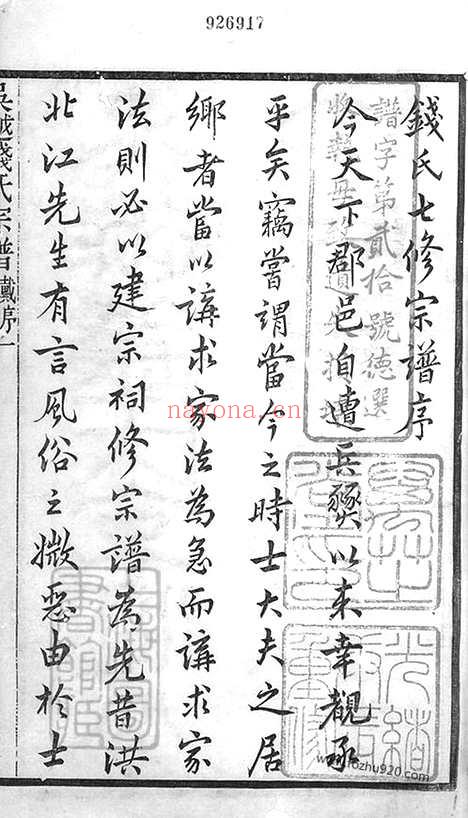 926917
錢氏七修宗譜序
今天下郡邑自遭兵燹以來幸覩承
平矣竊嘗謂當今之時士大夫之居
鄉者當以講求家法為急而講求家
法則必以建宗祠修宗譜為先昔洪
北江先生有言風俗之媺惡由於士
吳越錢氏宗譜
序一
譜字第貳拾號德選
光緒
nayona.cn